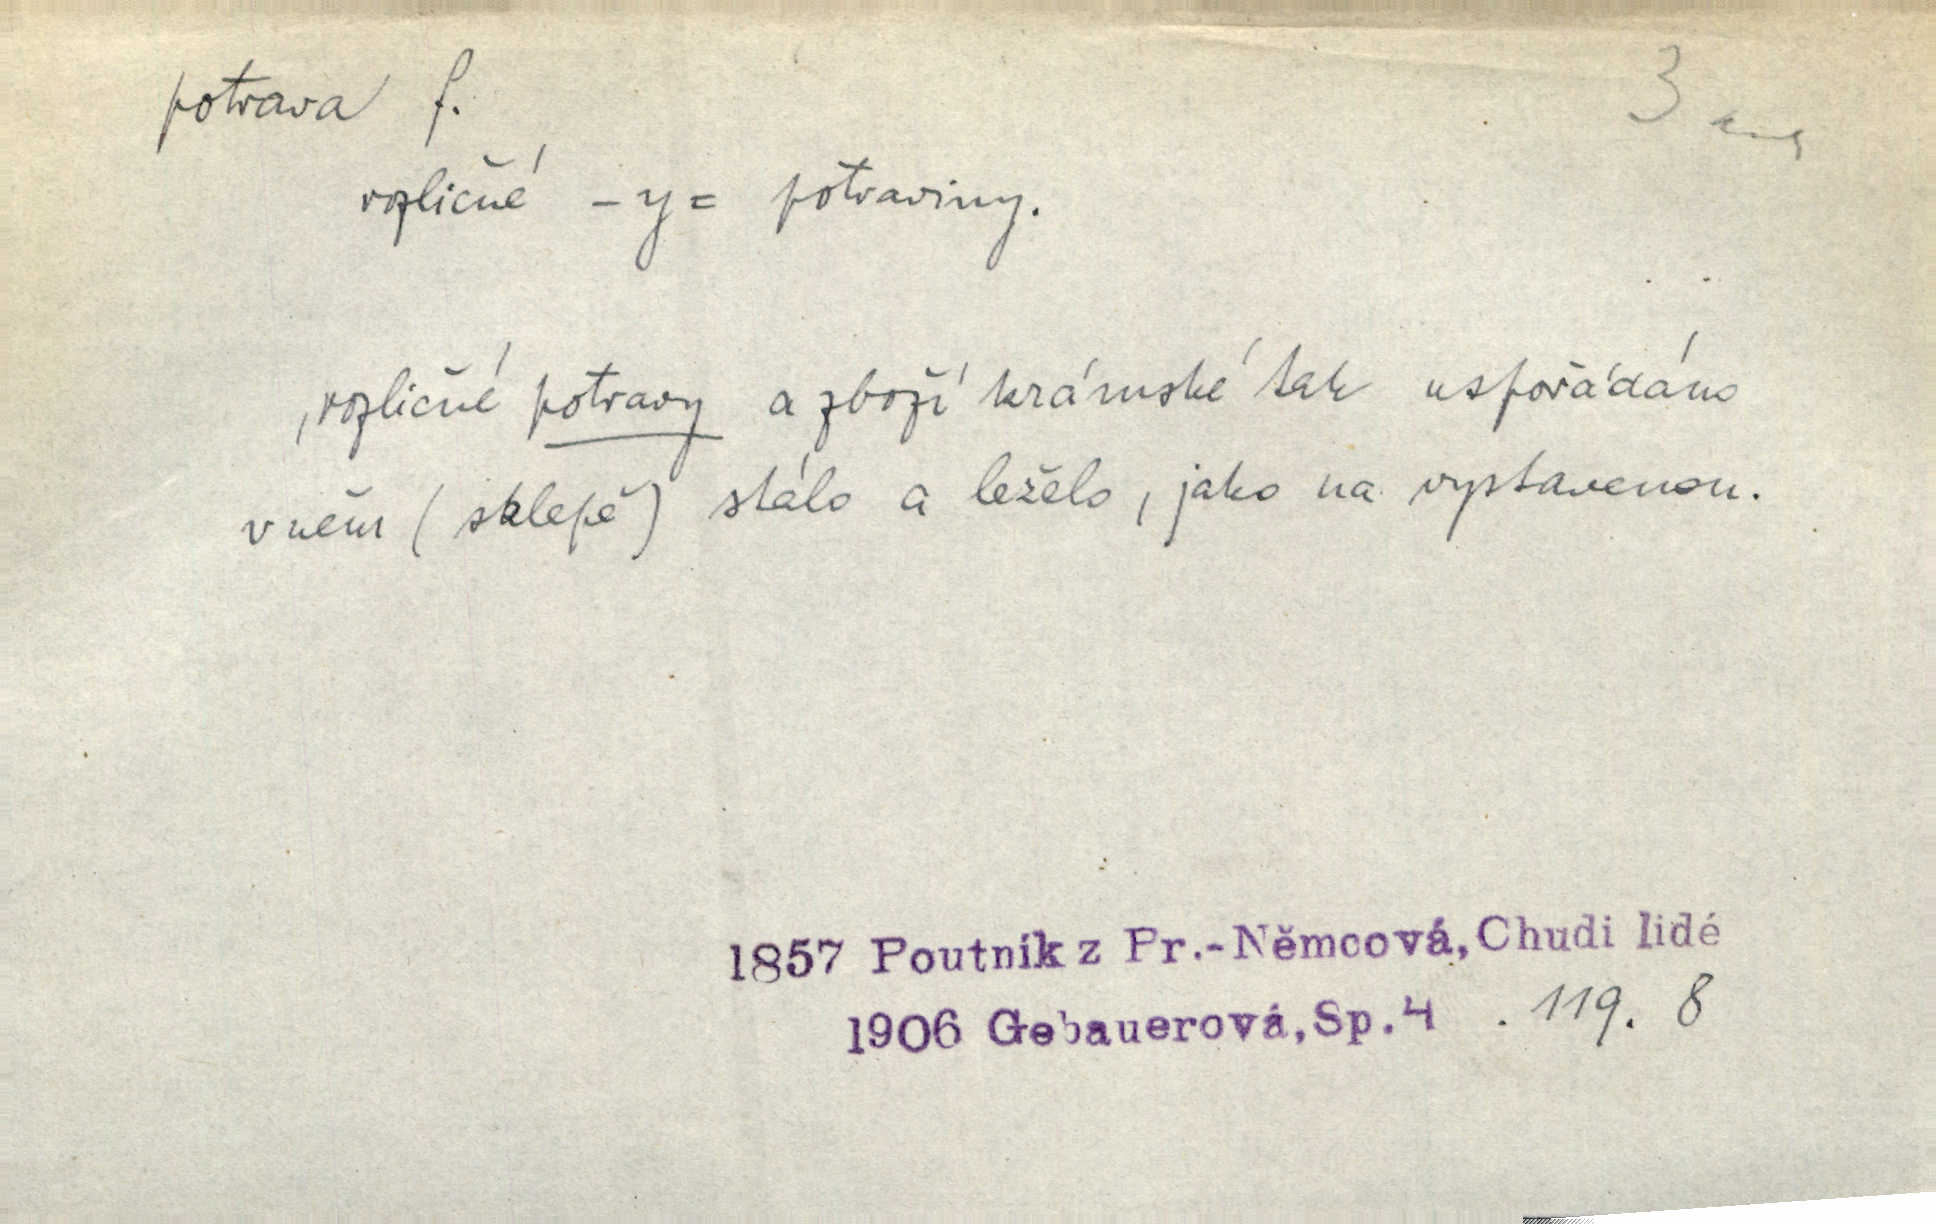 potrava f.
3
rozličné -y = potraviny.
, rozličné potravy a zboží krámské tak uspořádáno
v něm (sklepě) stálo a leželo, jako na vystavenou.
1857 Poutník z Pr.-Němcová, Chudi lidé
1906 Gebauerová, Sp.4 . 119. 8